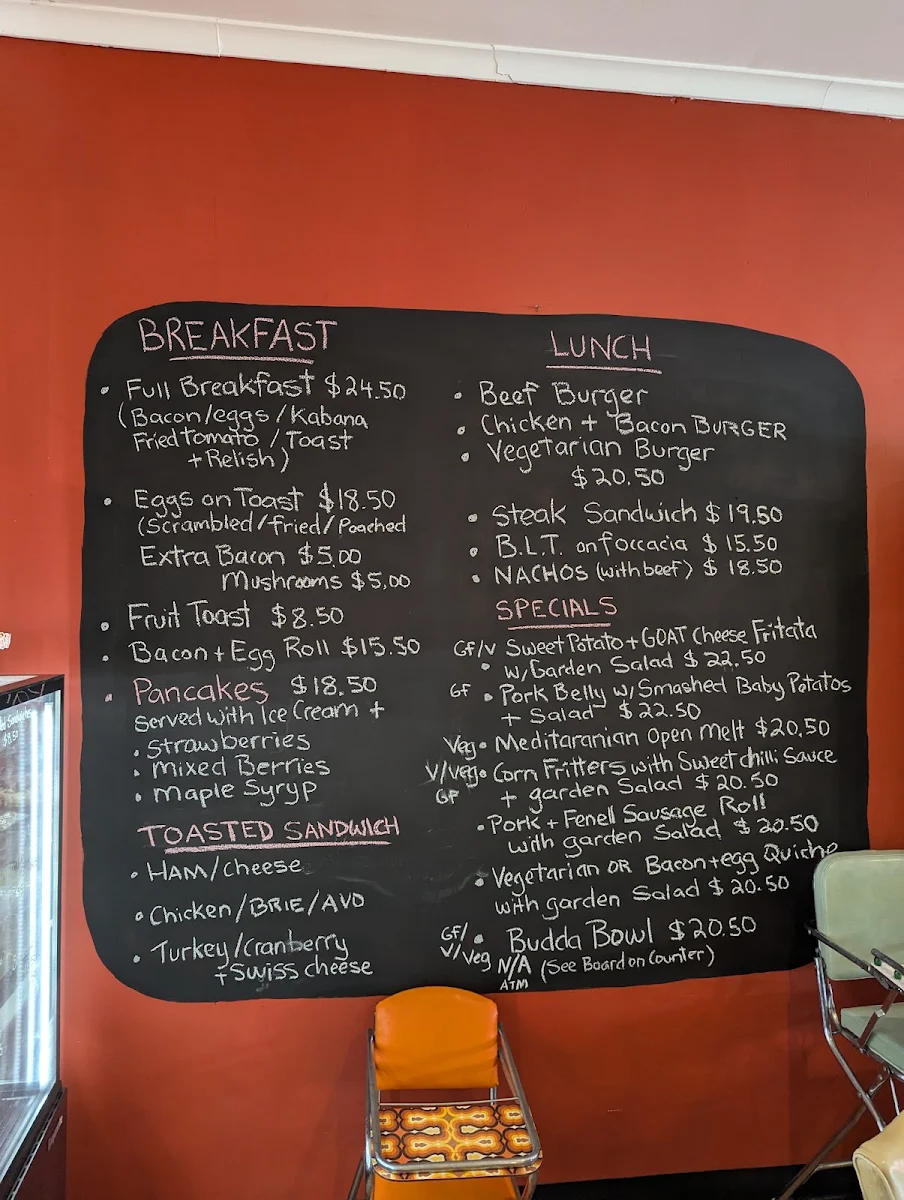 BREAKFAST
• Full Breakfast $24.50
(Bacon/eggs/Kabana
Fried tomato/Toast
+Relish)
• Eggs on Toast $18.50
(Scrambled/fried/Poached
Extra Bacon $5.00
Mushrooms $5.00
• Fruit Toast $8.50
• Bacon + Egg Roll $15.50
• Pancakes $18.50
served with Ice Cream +
• Strawberries
• mixed Berries
• maple Syryp
TOASTED SANDWICH
• HAM/cheese
• Chicken/BRIE/AVO
• Turkey/Cranberry
+Swiss cheese
LUNCH
• Beef Burger
• Chicken + Bacon BURGER
• Vegetarian Burger
$20.50
• Steak Sandwich $19.50
• B.L.T. on foccacia $15.50
• NACHOS (with beef) $18.50
SPECIALS
GF/V • Sweet Potato + GOAT Cheese Fritata
w/Garden Salad $22.50
GF • Pork Belly w/Smashed Baby Potatos
+ Salad $22.50
Veg • Meditaranian Open melt $20.50
V/Veg • Corn Fritters with Sweet chilli Sauce
GF + garden Salad $20.50
• Pork + Fenell Sausage Roll
with garden Salad $20.50
• Vegetarian OR Bacon+egg Quiche
with garden Salad $20.50
GF/ • Budda Bowl $20.50
V/Veg N/A (See Board on Counter)
ATM
$8.50